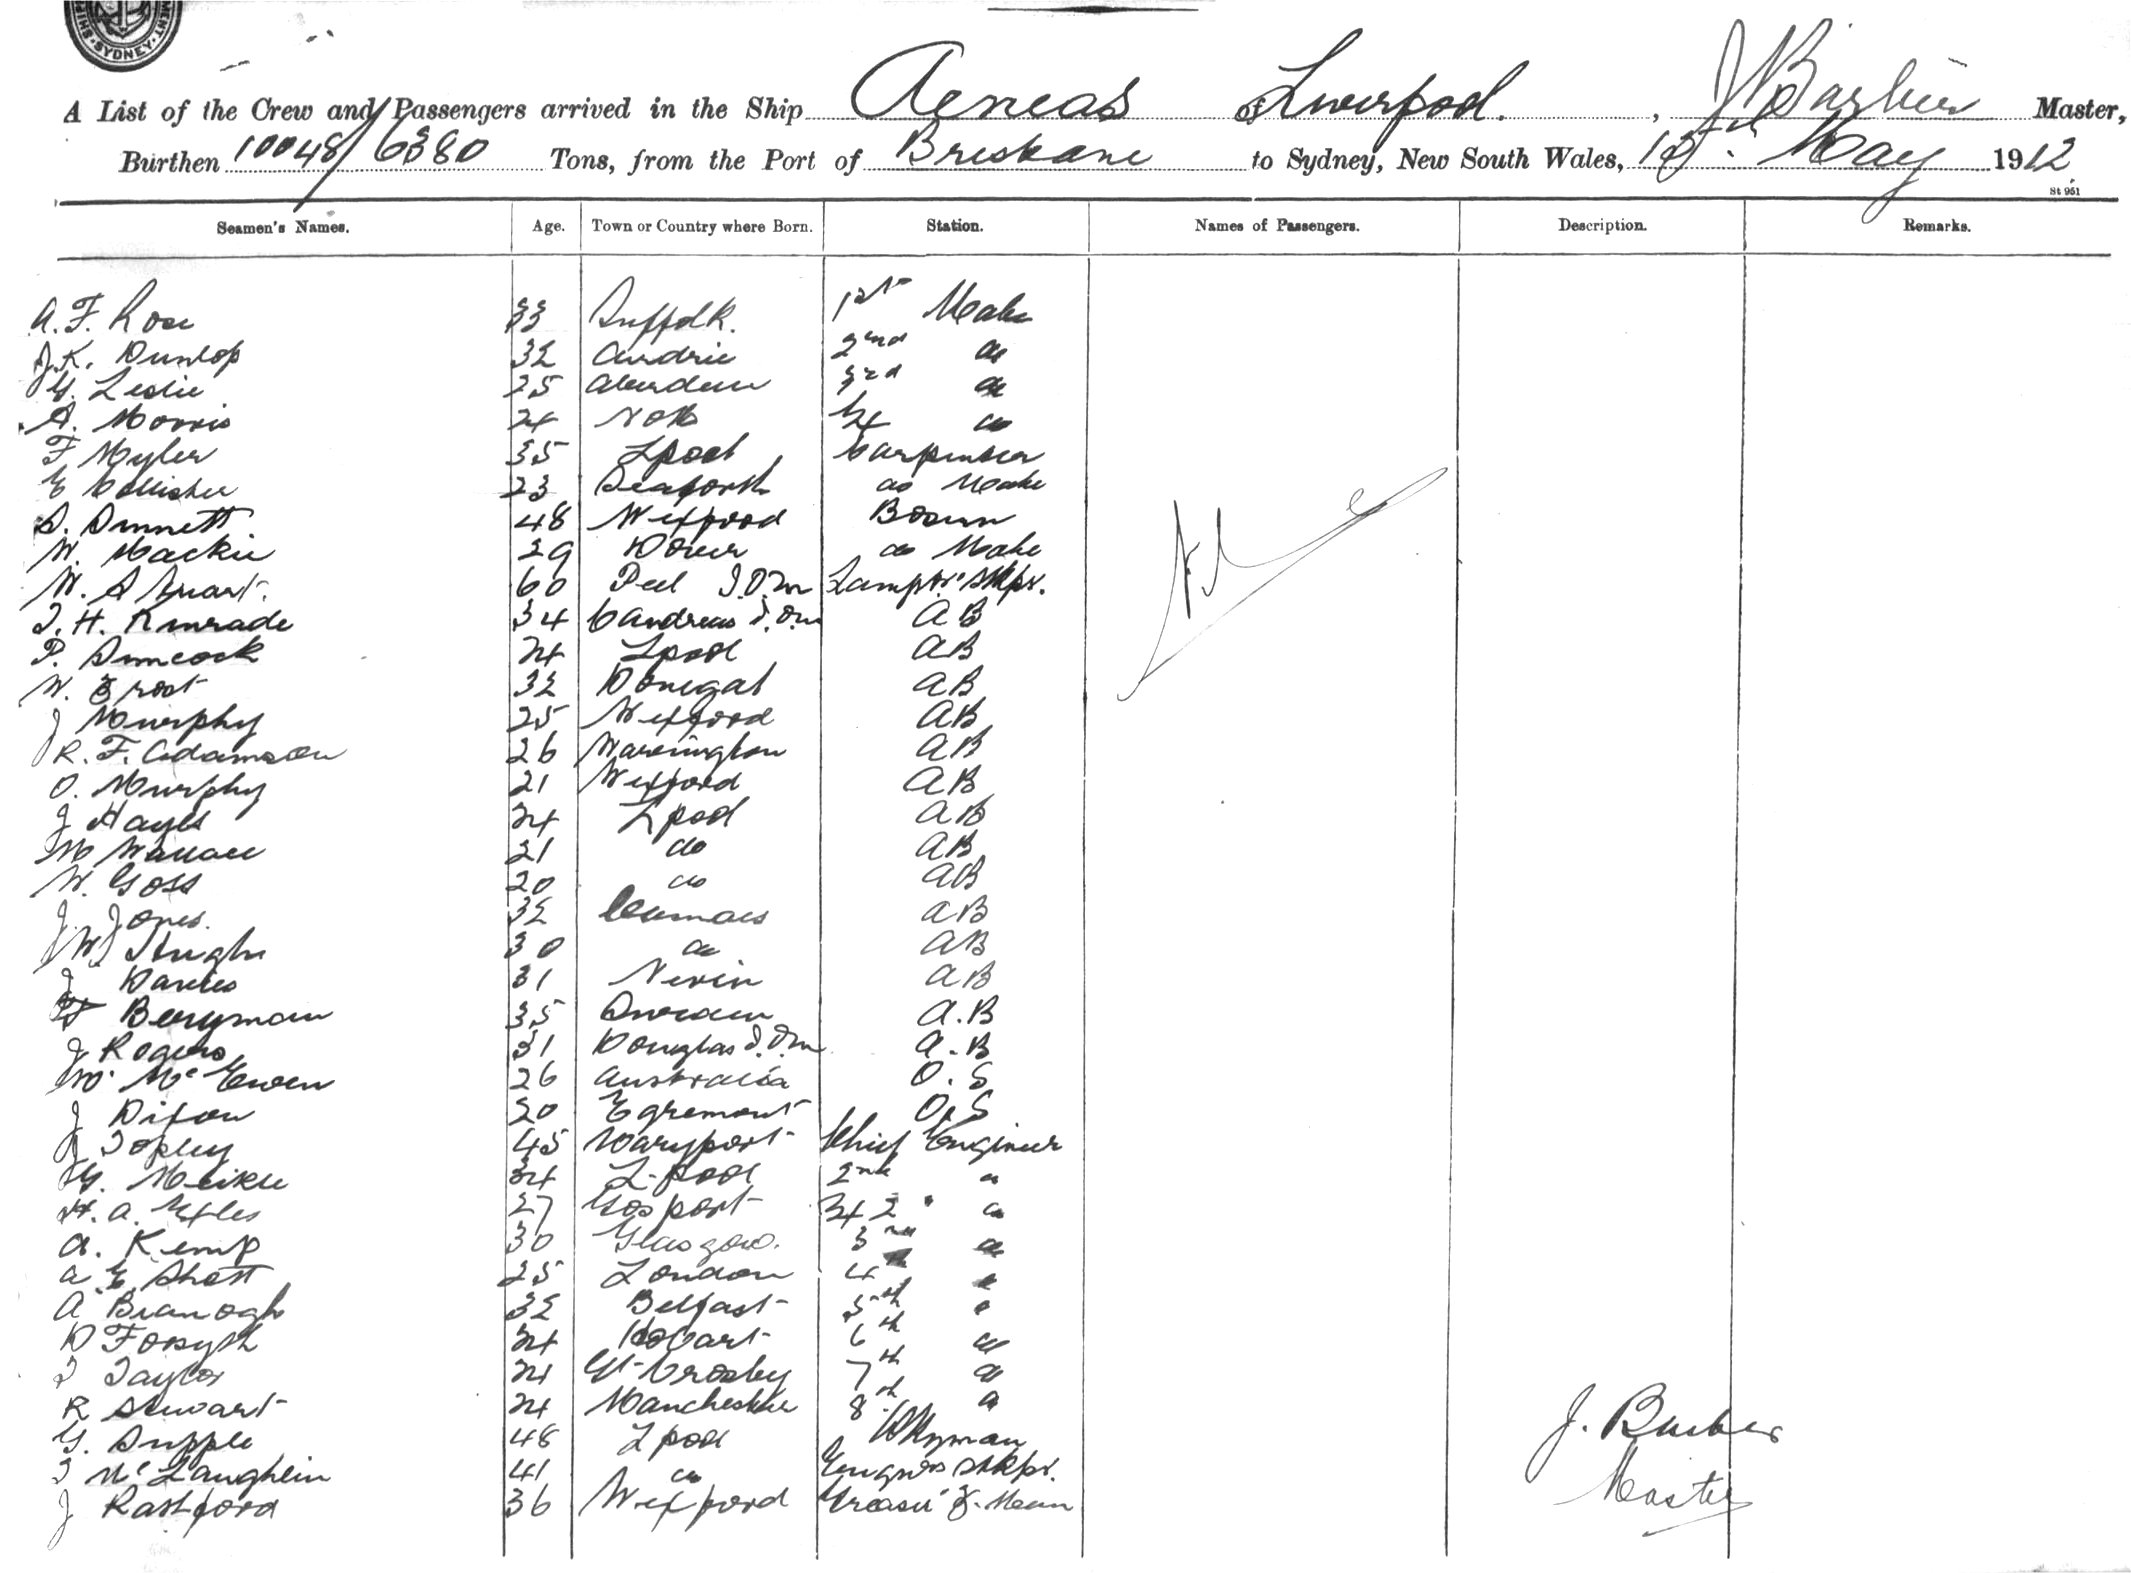 SYDNEY
A List of the Crew and Passengers arrived in the Ship Aeneas of Liverpool. , J Barber Master,
Burthen 10048/6380 Tons, from the Port of Brisbane to Sydney, New South Wales, May 1912
St 951
Seamen's Names. Age. Town or Country where Born. Station. Names of Passengers. Description. Remarks.
A. F. Rose 33 Suffolk. 1st Mate
J. K. Dunlop 32 Airdrie 2nd do
G. Leslie 25 Aberdeen 3rd do
A. Morris 24 Notts 4 do
F Myler 35 Lpool Carpenter
E Collister 23 Seaforth do Mate
S. Sinnett 48 Wexford Bosun
W. Mackie 29 Dover do Mate
W. A Quart. 60 Peel I.O.M Lamptr. Stkpr.
T. H. Kinrade 34 Andreas I.O.M AB
P. Simcock 24 Lpool AB
W. Frost 32 Donegal AB
J Murphy 25 Wexford AB
R. F. Adamson 26 Warrington AB
O. Murphy 21 Wexford AB
J Hayes 24 Lpool AB
M Wallace 21 do AB
W. Goss 20 do AB
J. Jones. 32 Cemaes AB
W Hughes 30 do AB
J Davies 31 Nevin AB
Berryman 35 AB
J Rogers 31 Douglas I.O.M A.B
W. McEwen 26 Australia O.S
J Dixon 20 Egremont O.S
J Topley 45 Maryport Chief Engineer
G. Meikle 34 L-pool 2nd "
H. A. Eyles 27 Gosport 2 "
A. Kemp 30 Glasgow. 3rd "
A E Shott 25 London 4th "
A Branogh 32 Belfast 5th "
D Forsyth 24 Hobart 6th "
T Taylor 24 Gt Crosby 7th "
R Stewart 24 Manchester 8th "
G. Supple 48 Lpool Dkyman
T McLaughlin 41 do Engnrs Stkpr.
J Rashford 36 Wexford Greaser & F-Man
Nil
J. Barber
Master